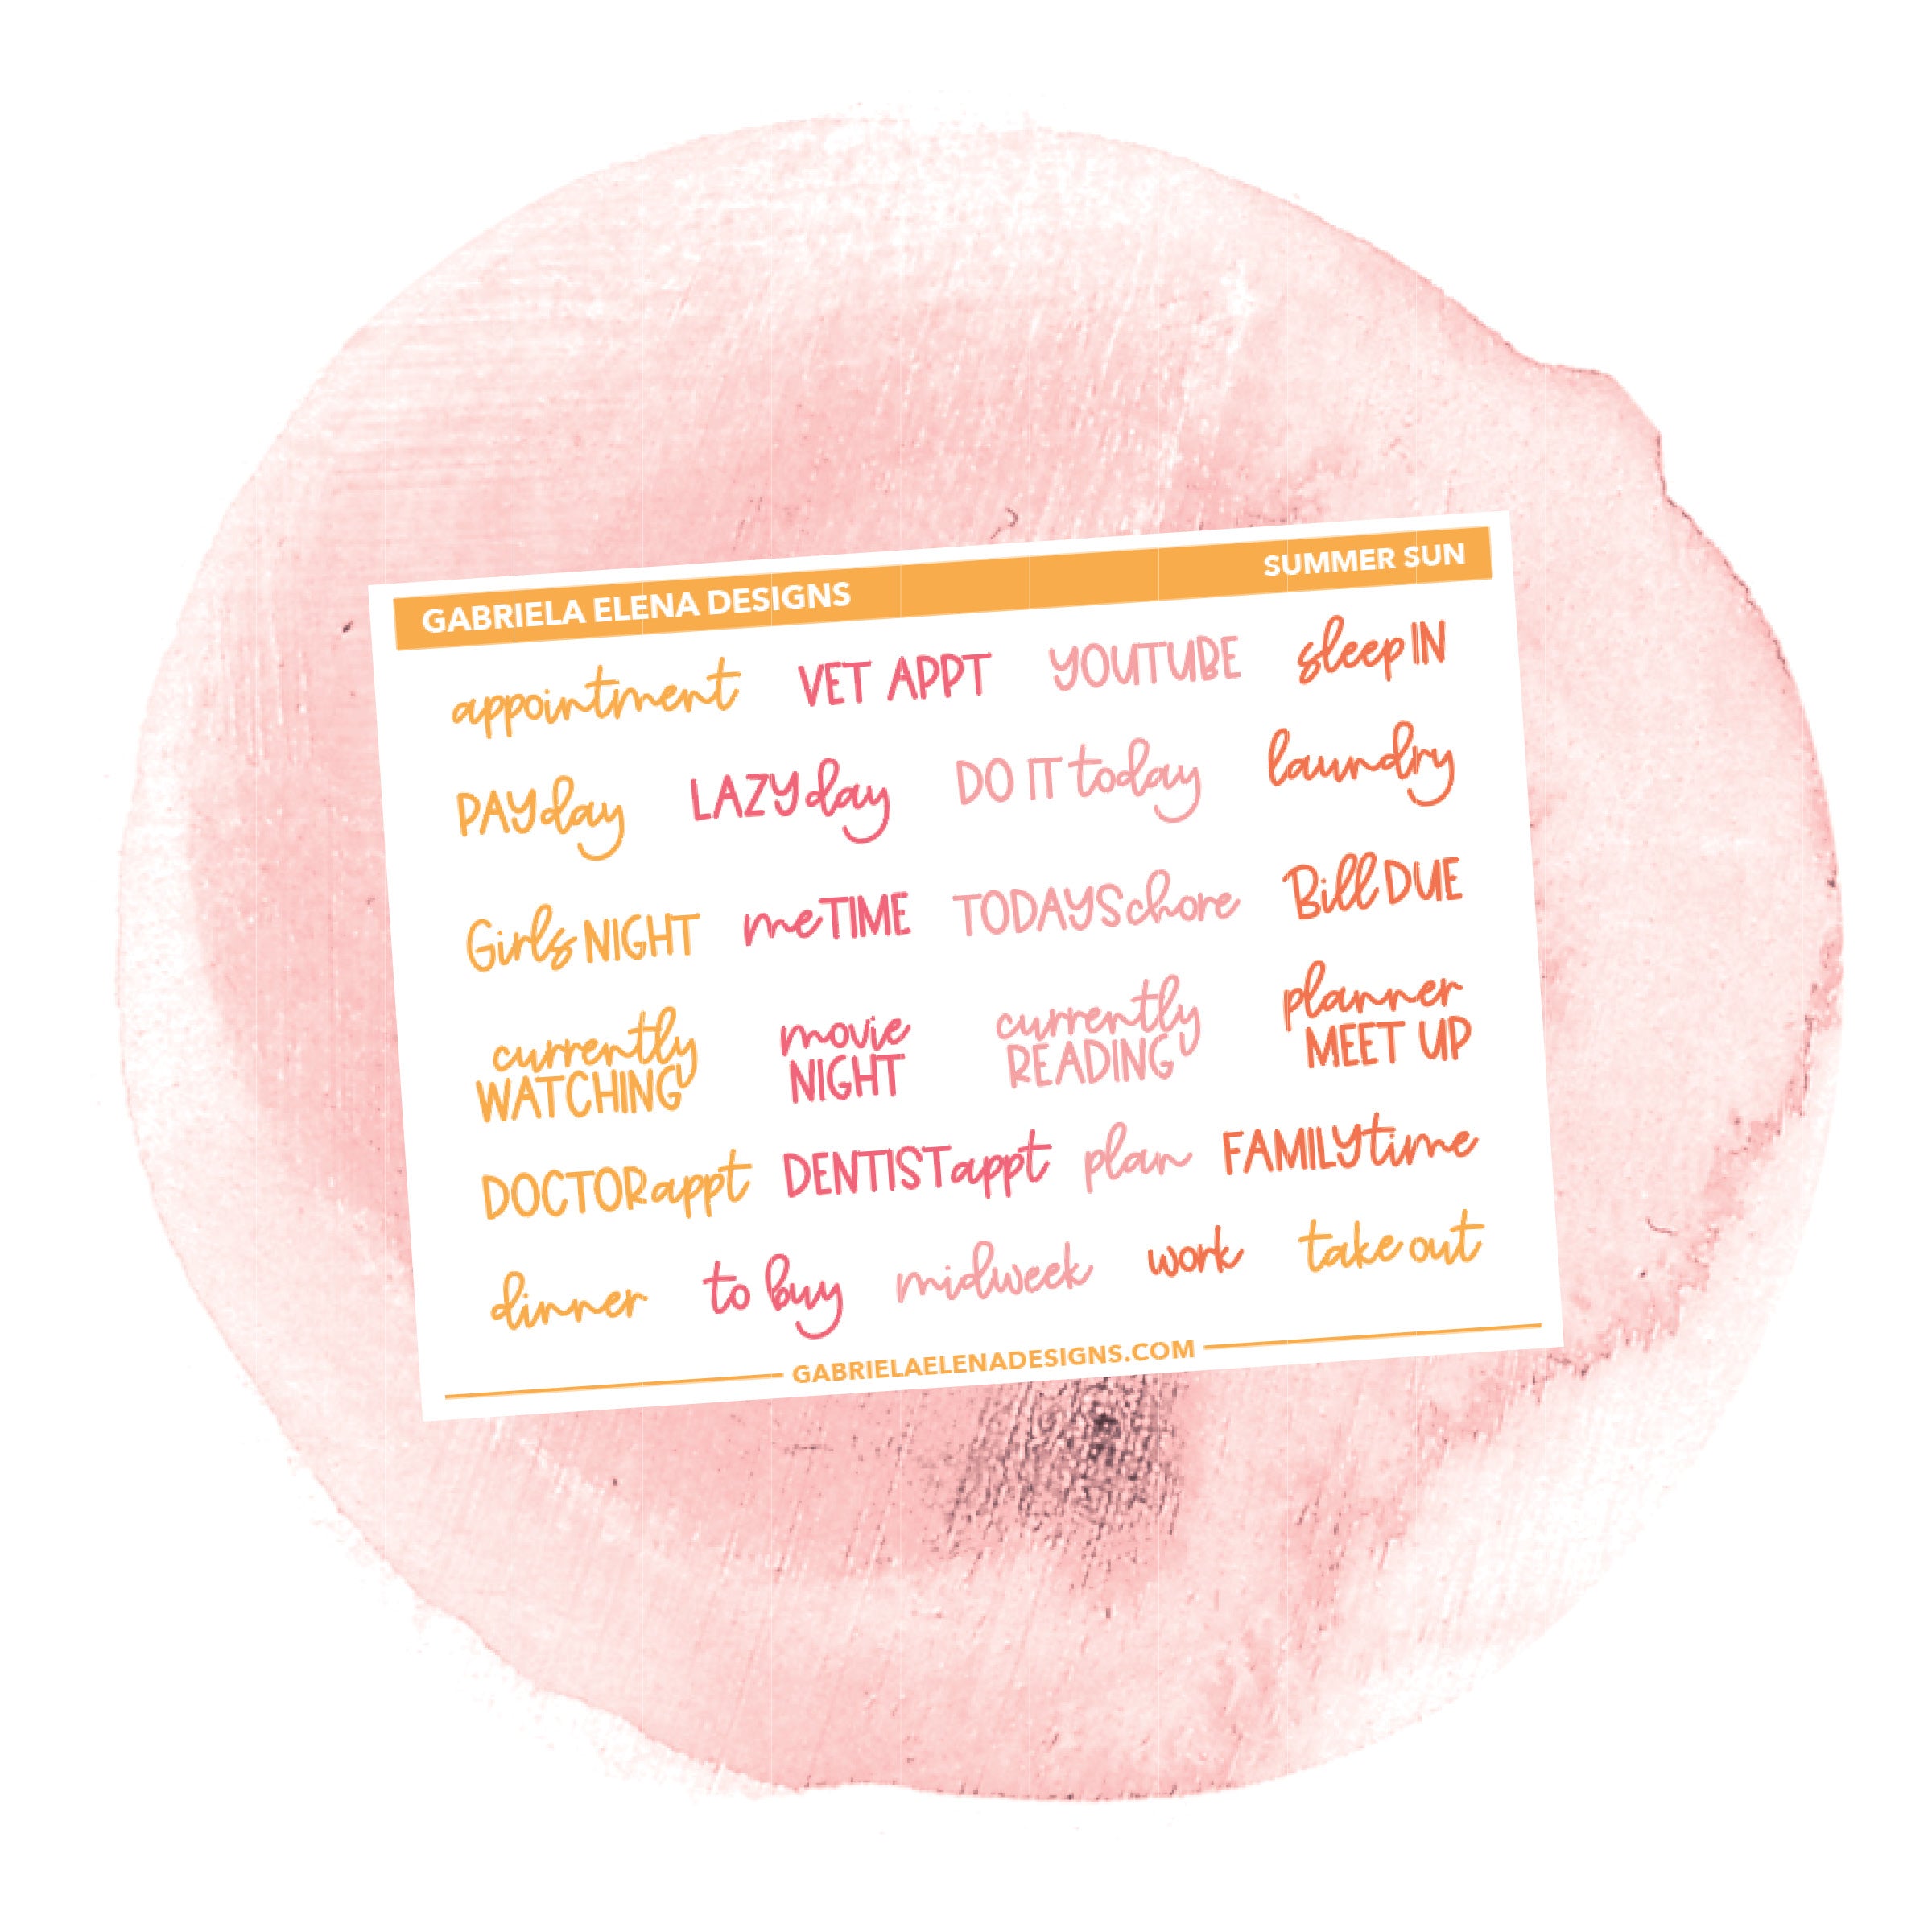 GABRIELA ELENA DESIGNS SUMMER SUN
appointment VET APPT YOUTUBE sleep IN
PAYday LAZYday DO IT today laundry
Girls NIGHT meTIME TODAYS chore Bill DUE
currently movie currently planner
WATCHING NIGHT READING MEET UP
DOCTOR appt DENTIST appt plan FAMILY time
dinner to buy midweek work take out
GABRIELAELENADESIGNS.COM